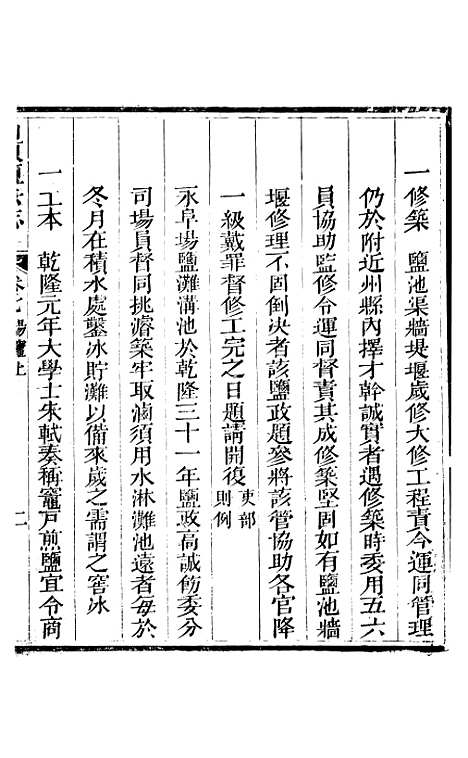 一修築　鹽池渠牆堤堰歲修大修工程責令運同管理
仍於附近州縣內擇才幹誠實者遇修築時委用五六
員協助監修令運同督責其成修築堅固如有鹽池牆
堰修理不固倒決者該鹽政題參將該管協助各官降
一級戴罪督修工完之日題請開復吏部則例
永阜場鹽灘溝池於乾隆三十一年鹽政高誠飭委分
司場員督同挑濬築牢取滷須用水淋灘池遠者每於
冬月在積水處鑿冰貯灘以備來歲之需謂之窖冰
一工本　乾隆元年大學士朱軾奏稱竈戶煎鹽宜令商
卷七場竈上　二